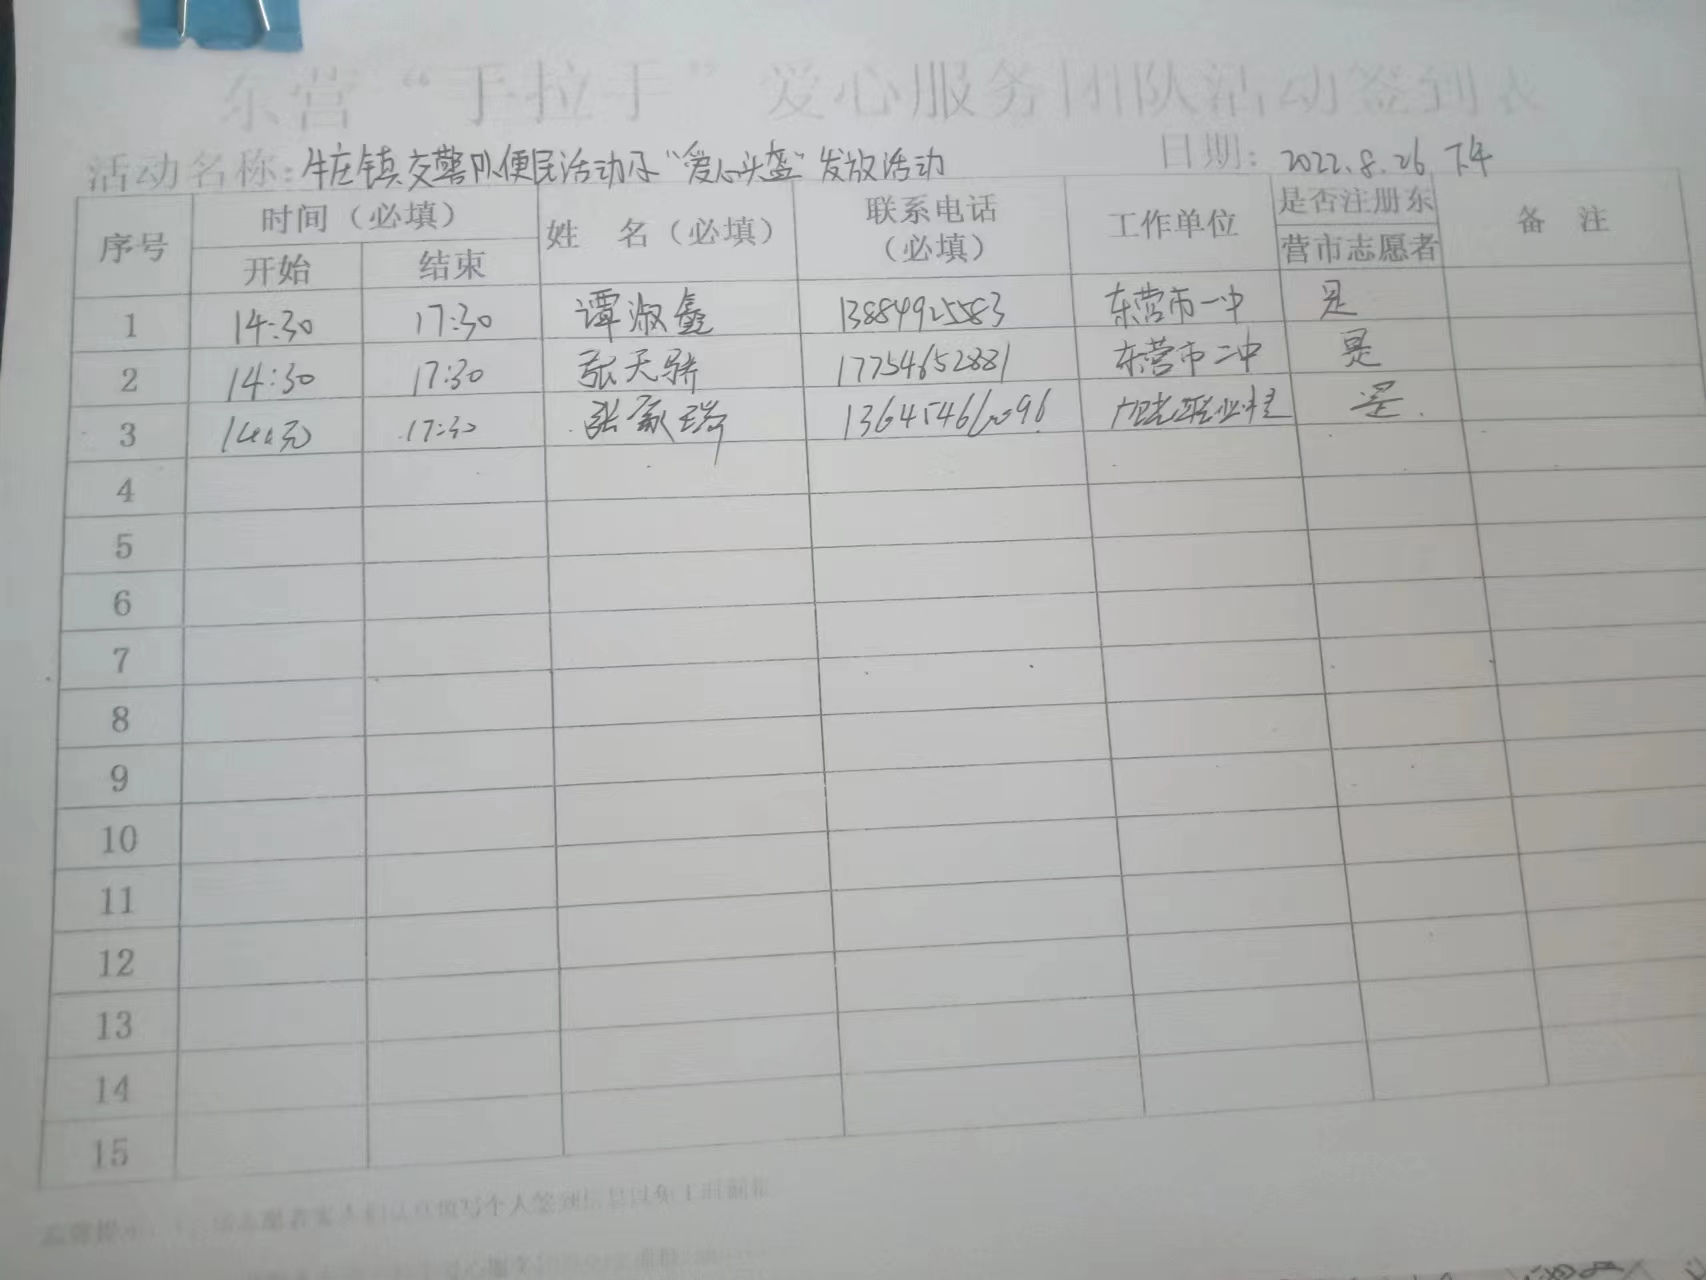 东营“手拉手”爱心服务团队活动签到表
活动名称：牛庄镇交警队便民活动及“爱心头盔”发放活动 日期：2022.8.26 下午
序号 时间（必填） 姓 名（必填） 联系电话（必填） 工作单位 是否注册东营市志愿者 备 注
开始 结束
1 14:30 17:30 谭淑鑫 13884925583 东营市一中 是
2 14:30 17:30 张天骄 17754652881 东营市二中 是
3 14:30 17:30 张家瑞 是
4
5
6
7
8
9
10
11
12
13
14
15
填写个人签到信息